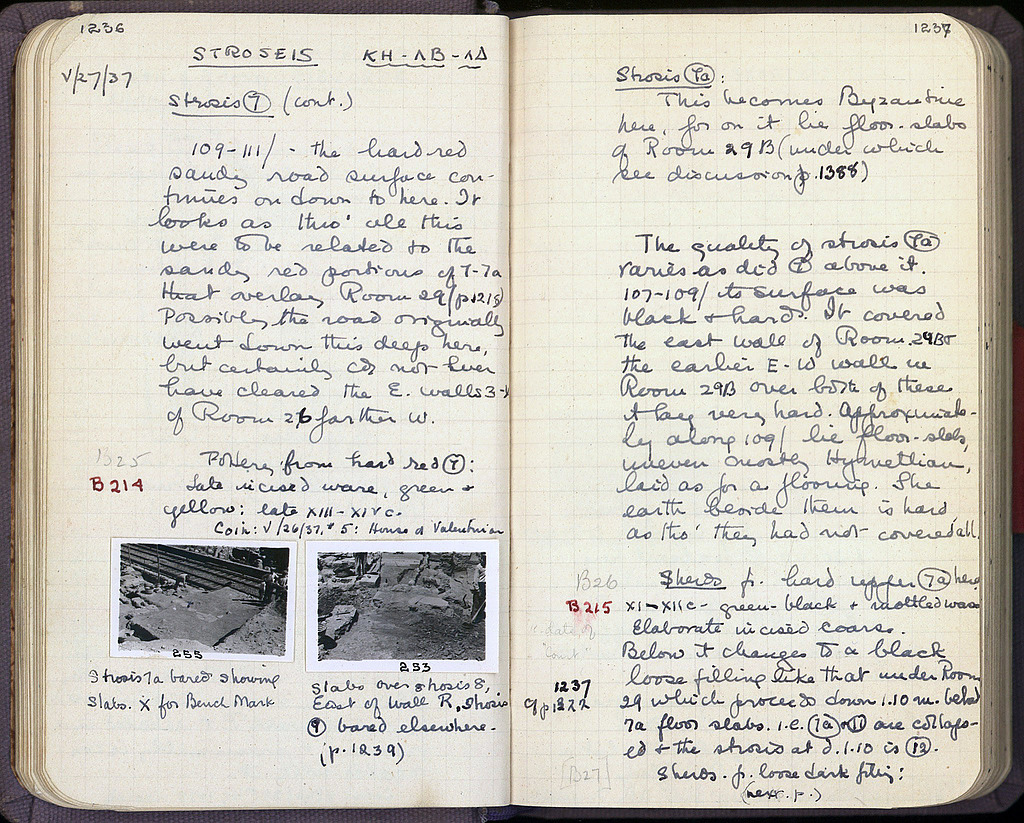 1236
STROSEIS KH-ΛB-ΛΔ
V/27/37
Strosis 7 (cont.)
109-111/ - the hard red
sandy road surface con-
tinues on down to here. It
looks as tho' all this
were to be related to the
sandy red portions of 7-7a
that overlay Room 29 (p1218)
Possibly the road originally
went down this deep here,
but certainly cd not ever
have cleared the E. walls 3-
of Room 26 farther W.
B25
B214
Pottery from hard red 7:
Late incised ware, green +
yellow: late XIII-XIV c.
Coin: V/26/37, # 5: House of Valentinian
255
Strosis 7a bared showing
Slabs. X for Bench Mark
253
Slabs over strosis 8,
East of Wall R, strosis
9 bared elsewhere.
(p.1239)
1237
Strosis 7a:
This becomes Byzantine
here, for on it lie floor-slabs
of Room 29B (under which
see discussion p.1388)
The quality of strosis 7a
varies as did 7 above it.
107-109/ its surface was
black + hard. It covered
the east wall of Room 29B or
the earlier E-W wall in
Room 29B over both of these
it lay very hard. Approximate-
ly along 109/ lie floor-slabs,
uneven mostly Hymettian,
laid as for a flooring. The
earth beside them is hard
as tho' they had not covered all.
B26
B215
Sherds fr. hard upper 7a here
XI-XII c - green-black + mottled ware
Elaborate incised coarse.
"date of
Court"
Below it changes to a black
loose filling like that under Room
29 which proceeds down 1.10 m. below
7a floor slabs. i.e. 7a 11 are collaps-
ed + the strosis at d.1.10 is 12.
1237
cf p 1322
[B27]
Sherds fr. loose dark filling:
(next p.)